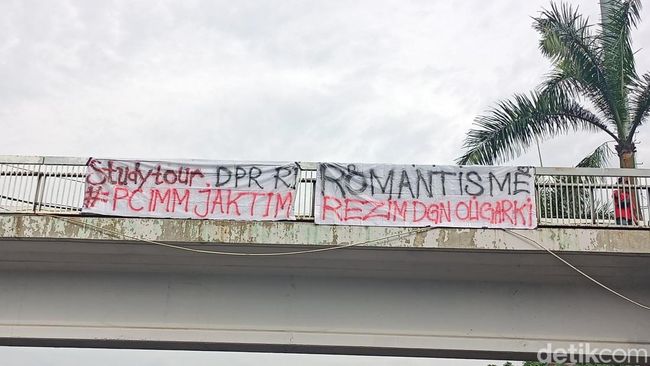 Studytour DPR RI
#PC IMM JAKTIM
ROMANTISME
REZIM DGN OLIGARKI
detikcom